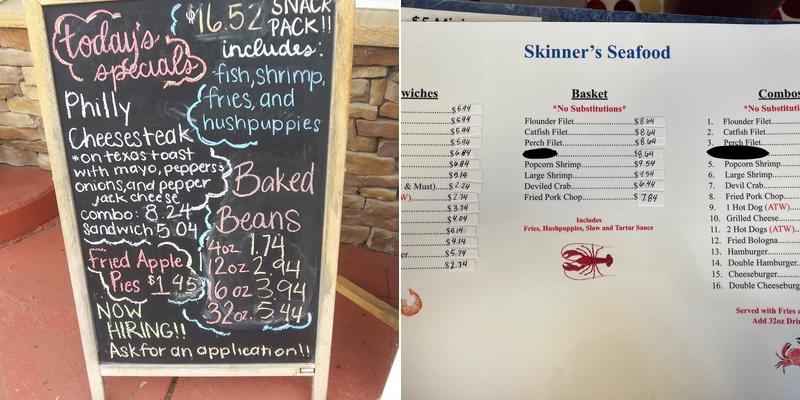 $16.52 SNACK
PACK!!
includes:
fish, shrimp,
fries, and
hushpuppies
today's
specials
Philly
Cheesesteak
*on texas toast
with mayo, peppers
onions, and pepper
jack cheese
combo: 8.24
sandwich 5.04
Baked
Beans
4oz 1.74
12oz 2.94
16 oz 3.94
32oz. 5.44
Fried Apple
Pies $1.45
NOW
HIRING!!
Ask for an application!!
Skinner's Seafood
wiches
$5.94
$5.94
$5.94
$6.84
$6.84
$5.14
& Must) $2.24
W) $2.74
$3.74
$4.04
$6.14
$4.14
er $5.74
$2.74
Basket
*No Substitutions*
Flounder Filet $8.64
Catfish Filet $8.64
Perch Filet $8.64
$8.64
Popcorn Shrimp $9.54
Large Shrimp $9.54
Deviled Crab $6.44
Fried Pork Chop $7.84
Includes
Fries, Hushpuppies, Slaw and Tartar Sauce
Combos
*No Substituti
1. Flounder Filet
2. Catfish Filet
3. Perch Filet
5. Popcorn Shrimp
6. Large Shrimp
7. Devil Crab
8. Fried Pork Chop
9. 1 Hot Dog (ATW)
10. Grilled Cheese
11. 2 Hot Dogs (ATW)
12. Fried Bologna
13. Hamburger
14. Double Hamburger
15. Cheeseburger
16. Double Cheeseburge
Served with Fries a
Add 32oz Drin